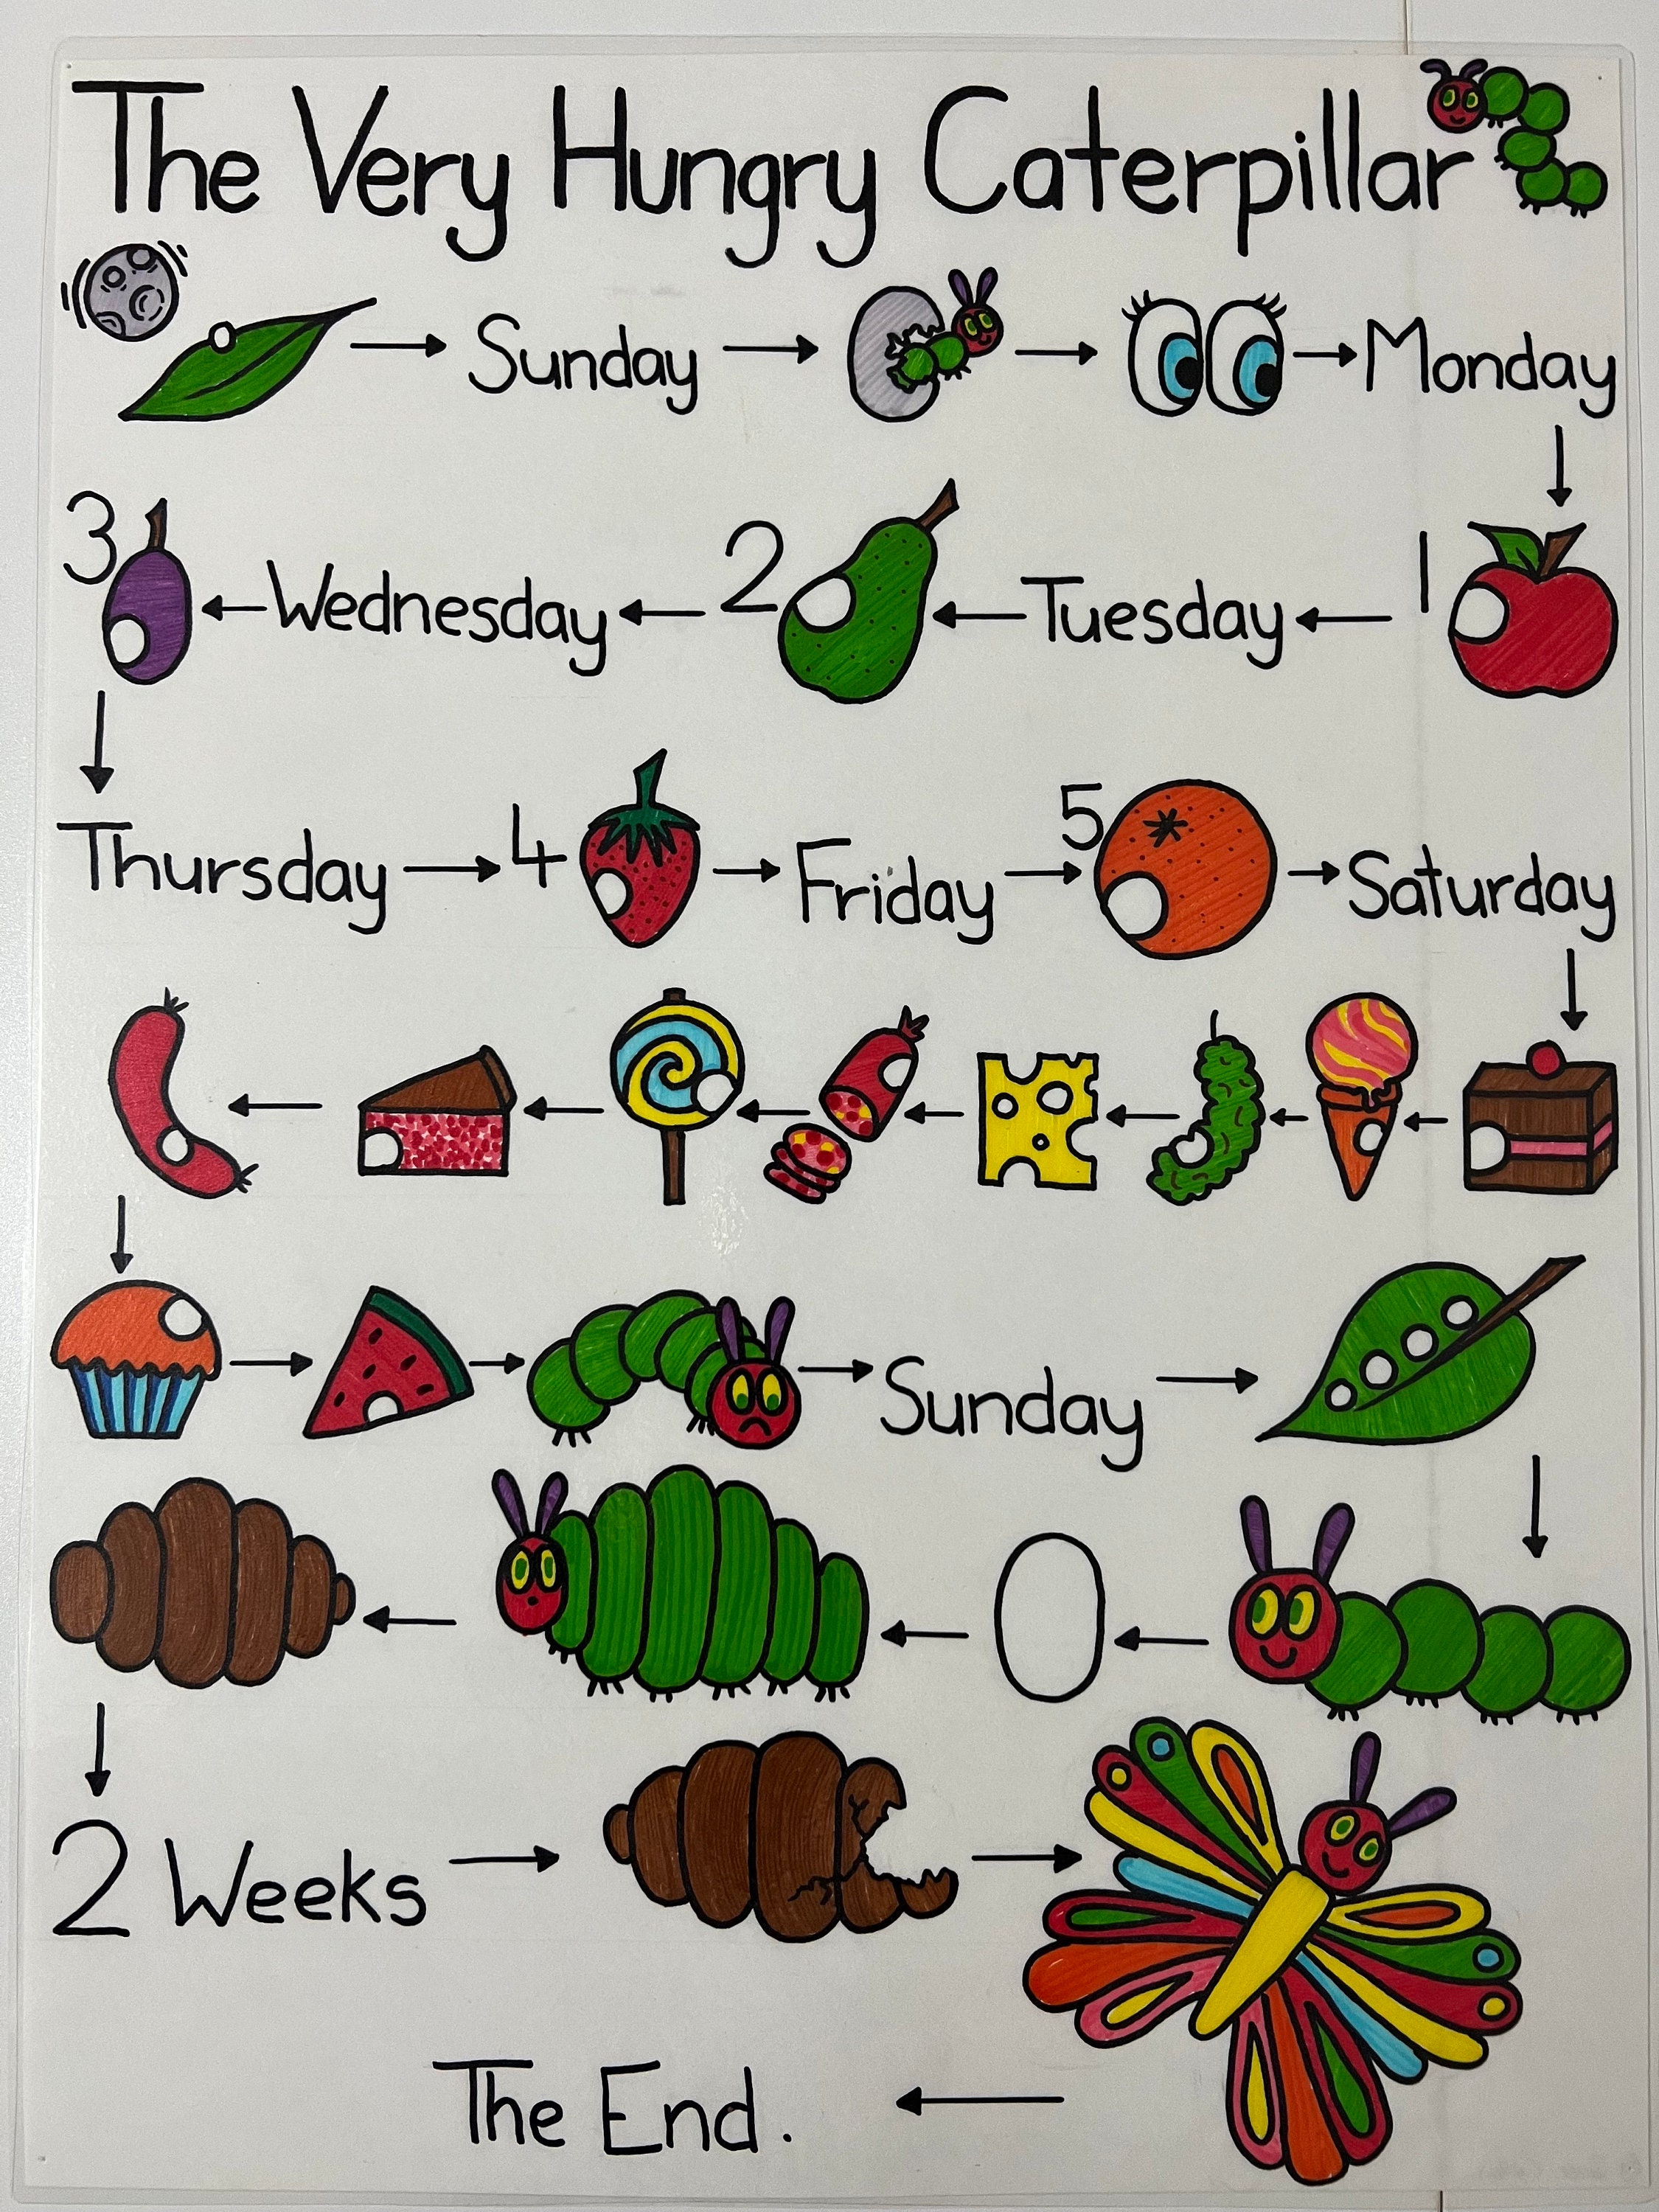 The Very Hungry Caterpillar
Sunday Monday
1 Tuesday 2 Wednesday 3
Thursday 4 Friday 5 Saturday
Sunday
0
2 Weeks
The End.